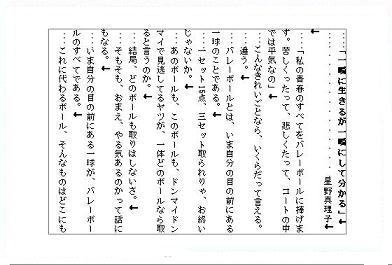 「一瞬に生きるが一瞬にして分かる」
星野真理子
「私の青春のすべてをバレーボールに捧げま
す。苦しくたって、悲しくたって、コートの中
では平気なの」
こんなきれいごとなら、いくらだって言える。
違う。
バレーボールとは、いま自分の目の前にある
一球のことである。
一セット15点、三セット取られりゃ、お終い
じゃないか。
あのボールも、このボールも、ドンマイドン
マイで見逃してるヤツが、一体どのボールなら取
ると言うのか。
結局、どのボールも取りはしないさ。
そもそも、おまえ、やる気あるのかって話に
もなる。
いま自分の目の前にある一球が、バレーボー
ルのすべてである。
これに代わるボール、そんなものはどこにも